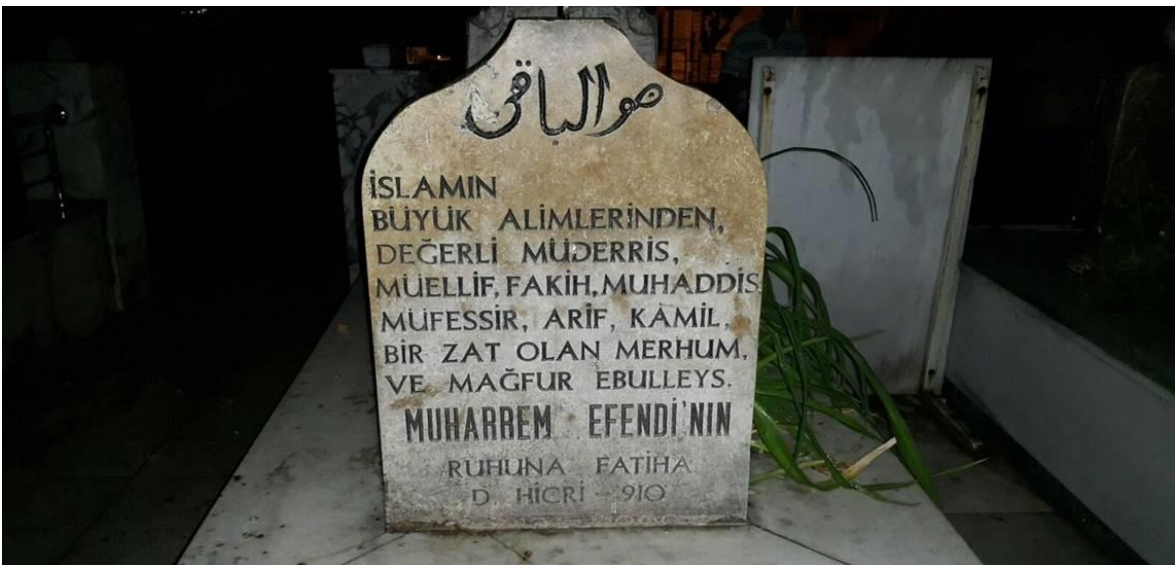 هو الباقي
İSLAMIN
BÜYÜK ALİMLERİNDEN,
DEĞERLİ MÜDERRİS,
MÜELLİF, FAKİH, MUHADDİS
MÜFESSİR, ARİF, KAMİL,
BİR ZAT OLAN MERHUM,
VE MAĞFUR EBULLEYS.
MUHARREM EFENDİ'NİN
RUHUNA FATİHA
D. HİCRİ - 910